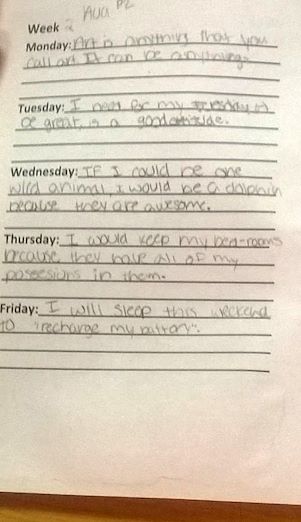 Aug P2
Week 2
Monday: Art is anything that you
call art. It can be anything.
Tuesday: I need for my Tuesday to
be great, is a good attitude.
Wednesday: If I could be one
wild animal, I would be a dolphin
because they are awesome.
Thursday: I would keep my bed-rooms
because they have all of my
possesions in them.
Friday: I will sleep this weekend
to "recharge my battery".